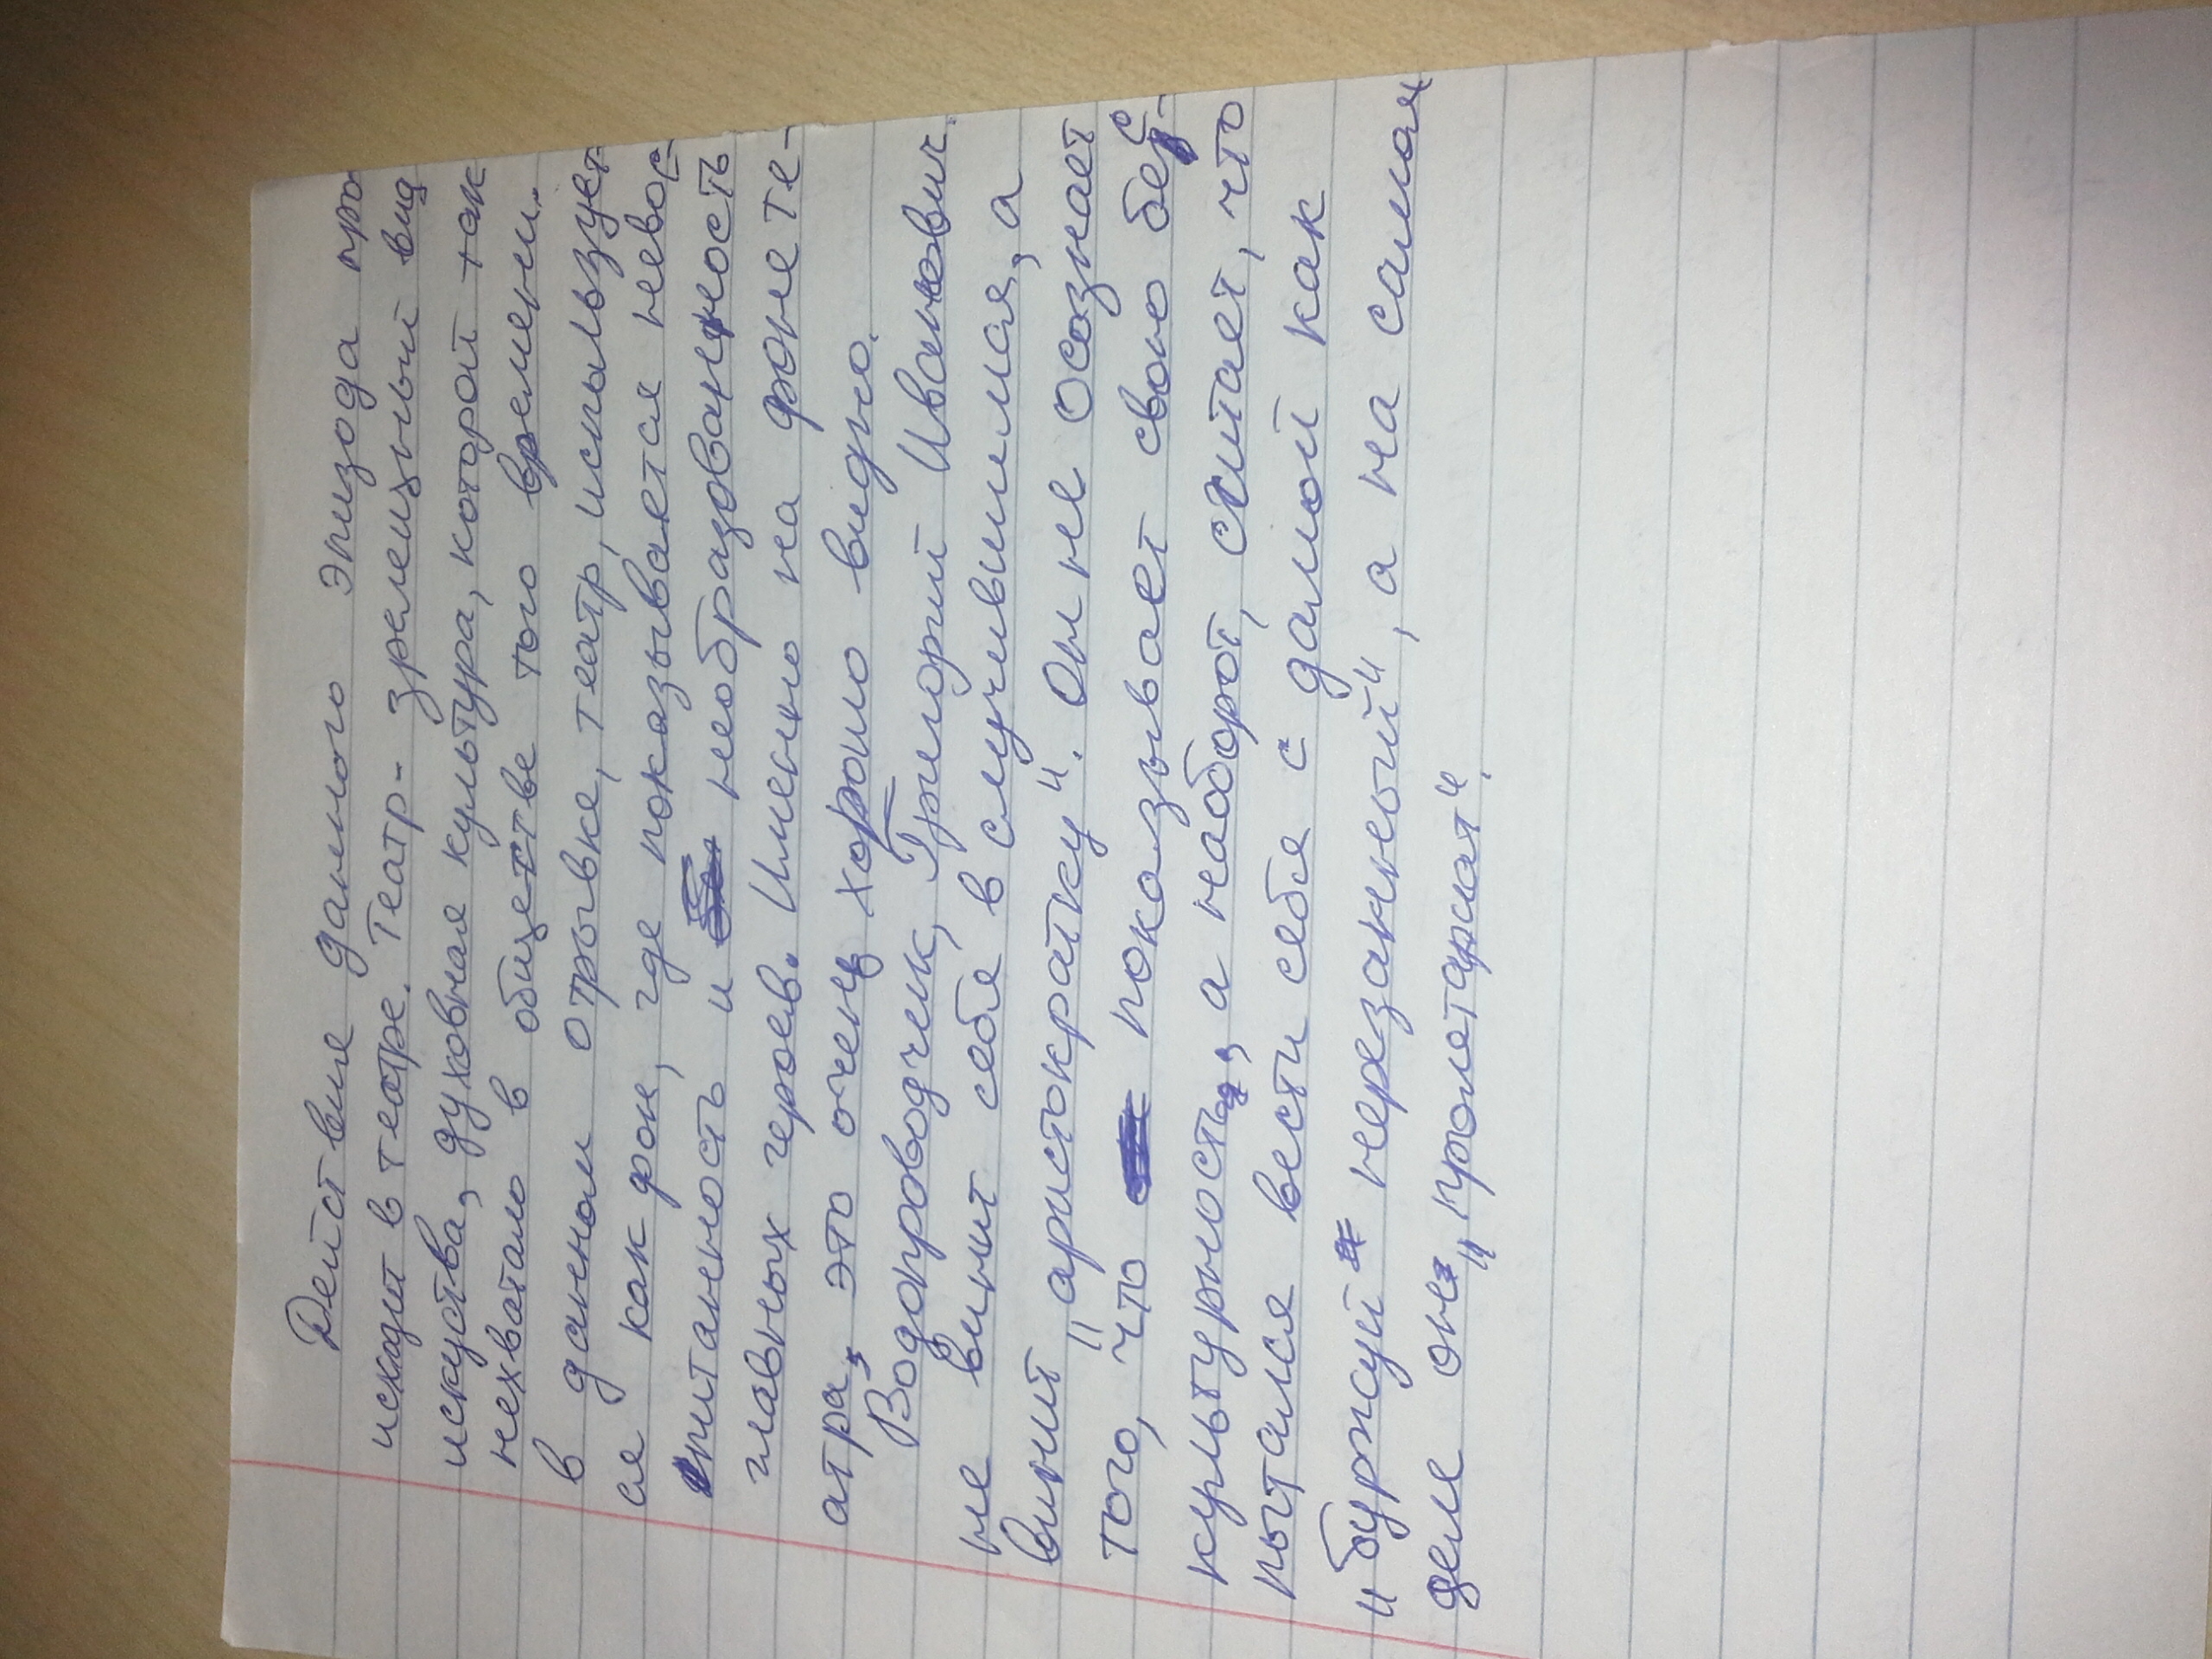 Действие данного эпизода про
исходит в театре. Театр - зрелещный вид
искуства, духовная культура, которой так
нехватало в обществе того времени.
В данном отрывке, театр, используєт
ся как фон, где показывается невос
питанность и необразованность
главных героев. Именно на фоне те-
атра, это очень хорошо видно.
Водопроводчик, Григорий Иванович.
не винит себя в случившимся, а
винит "аристократку". Он не осознает
того, что показывает свою бес-
культурность, а наоборот, считает, что
пытался вести себя с дамой как
"буржуй нерезанный", а на самом
деле он "пролетариат".